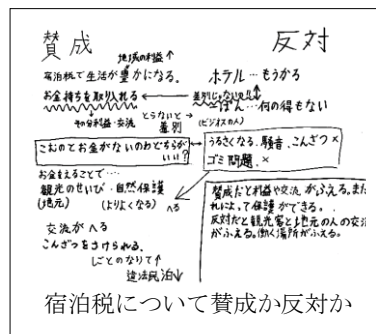 賛成
反対
地域の利益↑
宿泊税で生活が豊かになる。
ホテル…もうかる
お金持ちを取り入れる
差別じゃないの!!
その分利益・交流
とらないと差別
(ビジネスの人)
…何の得もない
こむのとお金がないのどちらがいい?
うるさくなる、騒音、こんざつ×
ゴミ問題、×
お金をえることで…
観光のせいび・自然保護
(地元)(よりよくなる)
へる
交流がへる
こんざつをさけられる、
しごとのなりて↑
違法民泊↓
賛成だと利益や交流がふえる。また
れによって保護ができる。
反対だと観光客と地元の人の交流
がふえる。働く場所がふえる。
宿泊税について賛成か反対か